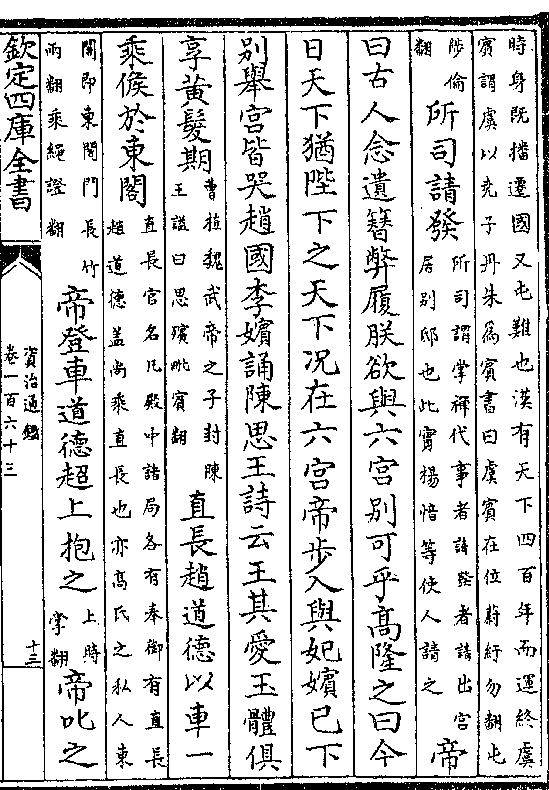 時身既播遷國又屯難也漢有天下四百年而運終虞
賓謂虞以堯子丹朱為賓書曰虞賓在位蔣紆勿翻屯
陟倫
翻
所司請發
所司謂掌禪代事者請發者請出宫
居别邸也此實楊愔等使人請之
帝
曰古人念遺簪弊履朕欲與六宫别可乎髙隆之曰今
日天下猶陛下之天下况在六宫帝步入與妃嬪已下
别舉宫皆哭趙國李嬪誦陳思王詩云王其愛玉體俱
享黄髮期
曹植魏武帝之子封陳
王諡曰思嬪毗賓翻
直長趙道德以車一
乘候於東閤
直長官名凡殿中諸局各有奉御有直長
趙道德盖尚乘直長也亦髙氏之私人東
閤即東閤門長竹
兩翻乘繩證翻
帝登車道德超上抱之
上時
掌翻
帝叱之
欽定四庫全書
資治通鑑
卷一百六十三
十三